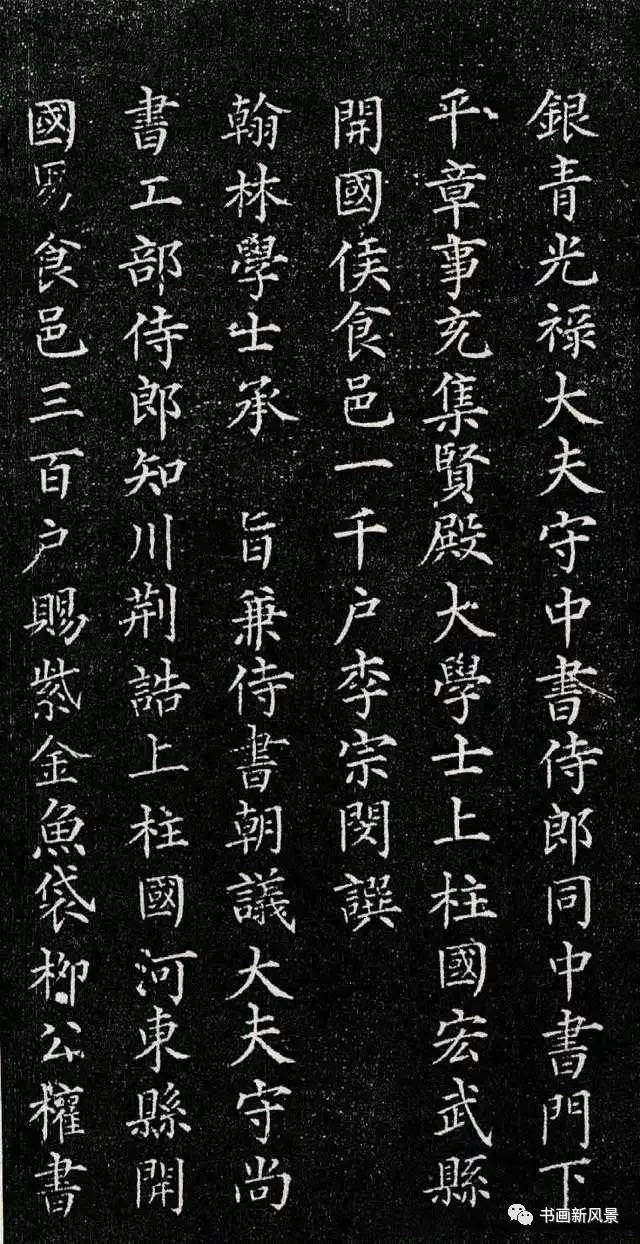 銀青光禄大夫守中書侍郎同中書門下
平章事充集賢殿大學士上柱國宏武縣
開國侯食邑一千户李宗閔譔
翰林學士承 旨兼侍書朝議大夫守尚
書工部侍郎知川荆誥上柱國河東縣開
國男食邑三百户賜紫金魚袋柳公權書
书画新风景